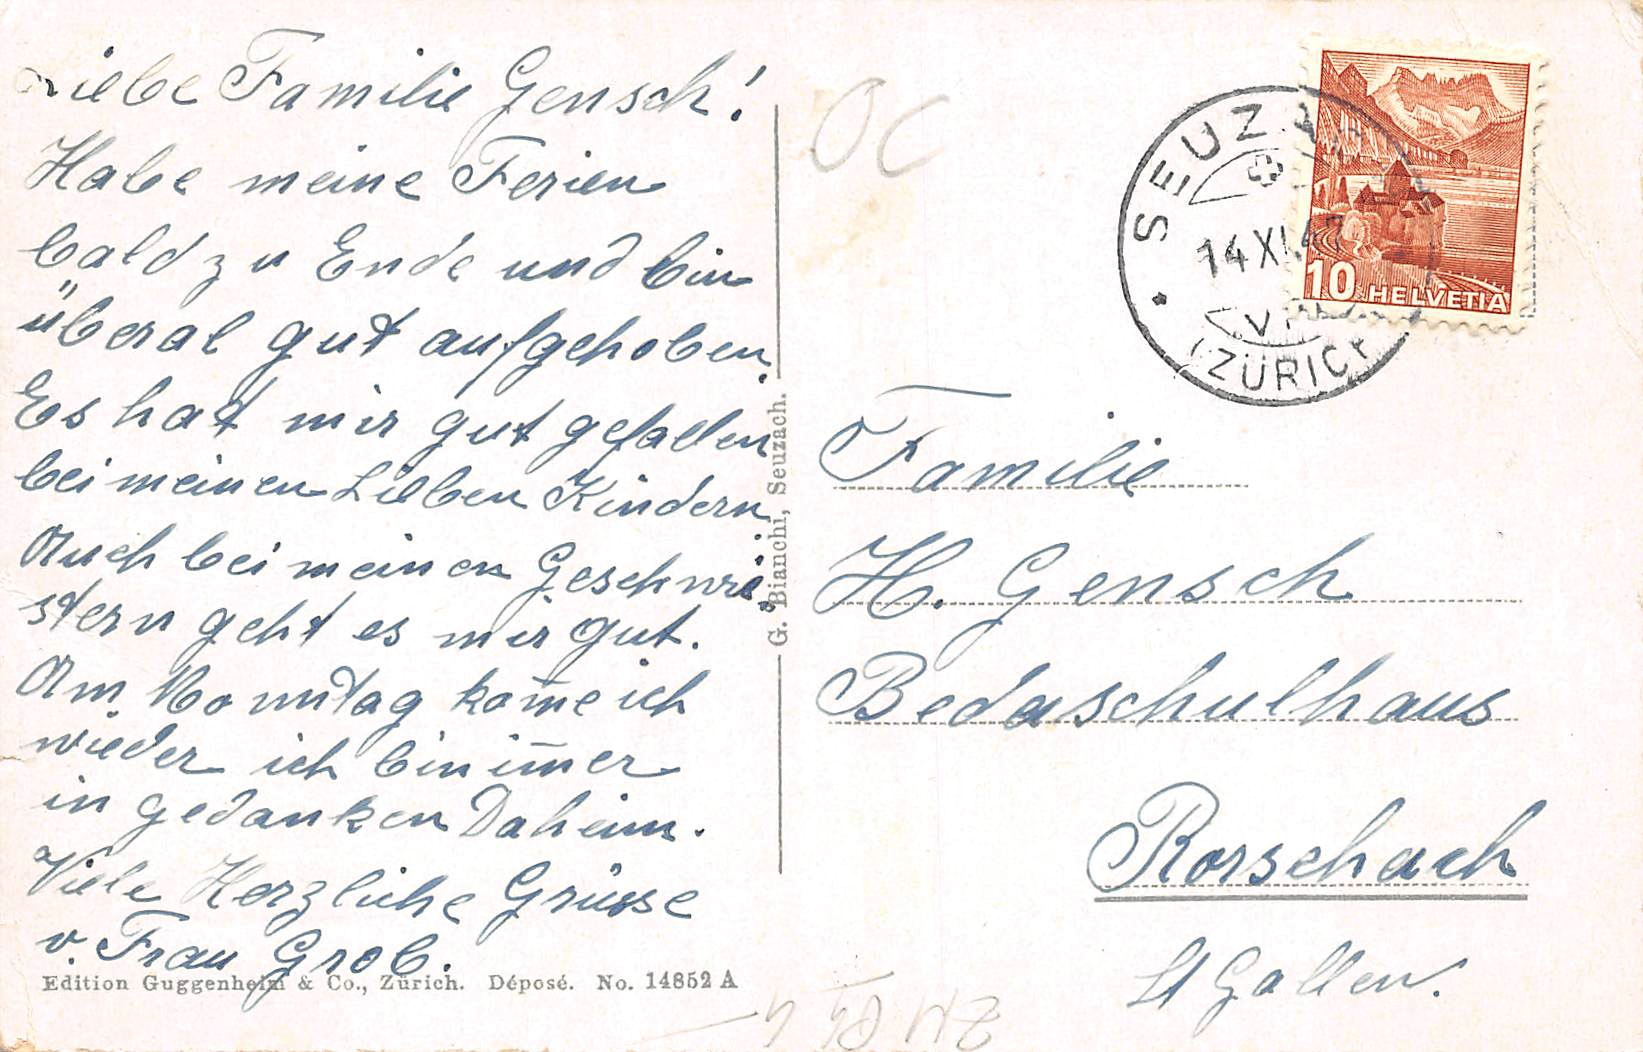 Liebe Familie Gensch!
Habe meine Ferien
bald zu Ende und bin
überal gut aufgehoben.
Es hat mir gut gefallen
bei meinen Lieben Kindern
Auch bei meinen Geschwi-
stern geht es mir gut.
Am Monntag kom̅e ich
wieder ich bin im̅er
in gedanken Daheim.
Viele Herzliche Grüsse
v. Frau Grob.
Edition Guggenheim & Co., Zürich. Déposé. No. 14852 A
G. Bianchi, Seuzach.
OC
SEUZACH
14 XI. 47
(ZÜRICH)
10 HELVETIA
Familie
H. Gensch
Bedaschulhaus
Rorschach
St Gallen.